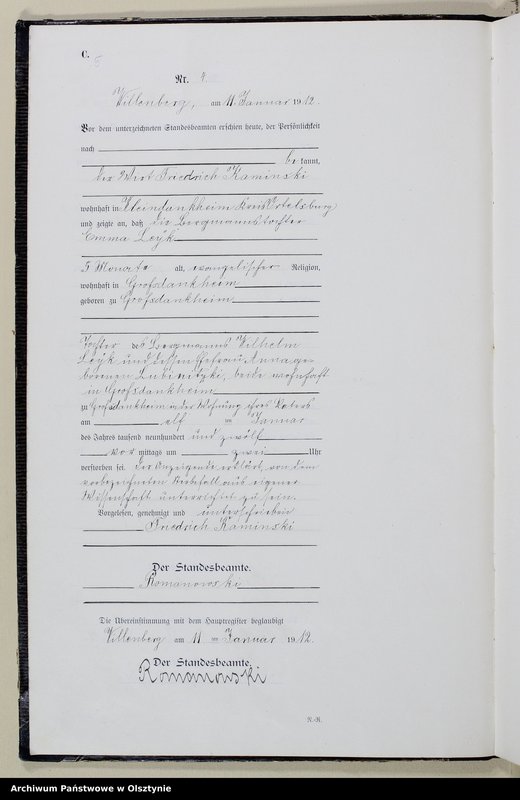 C.
5
Nr. 4.
Willenberg, am 11. Januar 1912.
Vor dem unterzeichneten Standesbeamten erschien heute, der Persönlichkeit
nach
be kannt,
der Wirt Friedrich Kaminski
wohnhaft in Kleindankheim Kreis Ortelsburg
und zeigte an, daß die Bergmannstochter
Emma Leyk
5 Monate alt, evangelischer Religion,
wohnhaft in Großdankheim
geboren zu Großdankheim
Tochter des Bergmanns Wilhelm
Leyk und dessen Ehefrau Anna ge-
borenen, beide wohnhaft
in Großdankheim
zu Großdankheim in der Wohnung ihres Vaters
am elf ten Januar
des Jahres tausend neunhundert und zwölf
vor mittags um zwei Uhr
verstorben sei. Der Anzeigende erklärt, von dem
vorbezeichneten Sterbefall aus eigener
Wissenschaft unterrichtet zu sein.
Vorgelesen, genehmigt und unterschrieben
Friedrich Kaminski
Der Standesbeamte.
Romanowski
Die Übereinstimmung mit dem Hauptregister beglaubigt
Willenberg am 11 ten Januar 1912.
Der Standesbeamte.
Romanowski
R.-R.
Archiwum Państwowe w Olsztynie